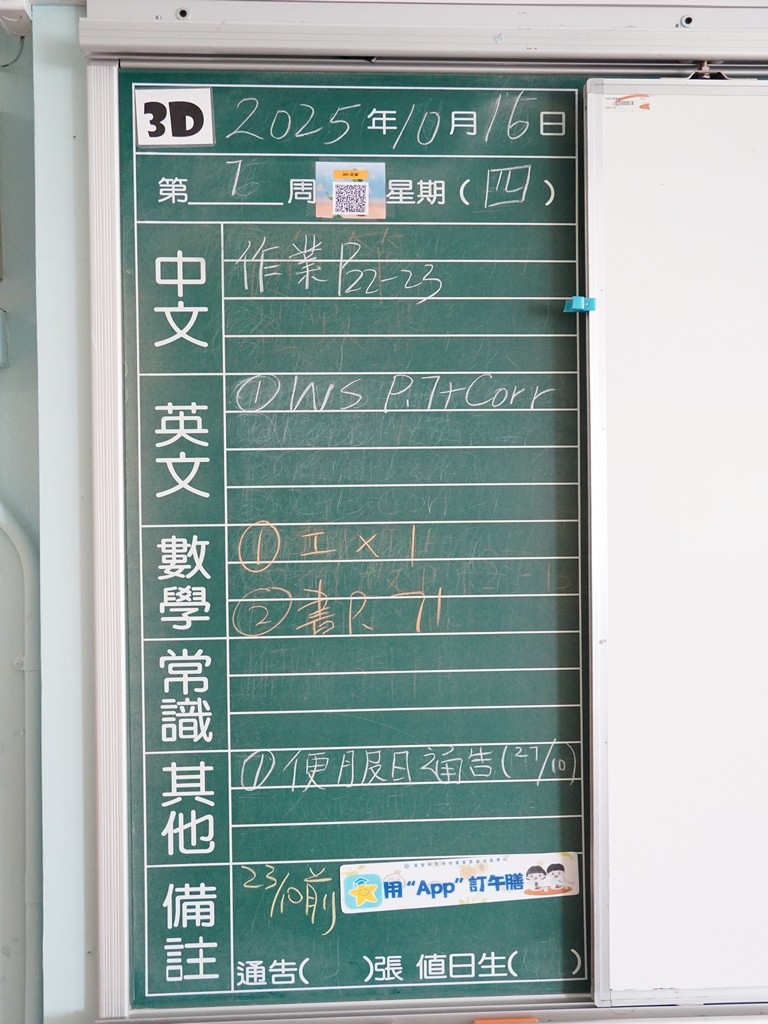 3D 2025年10月16日
第7周 星期(四)
中文
作業P22-23
英文
①WS P.7+Corr
數學
①工×1
②書P.71
常識
其他
①便服日通告(27/10)
備註
23/10前 用“App”訂午膳
通告( )張 值日生( )